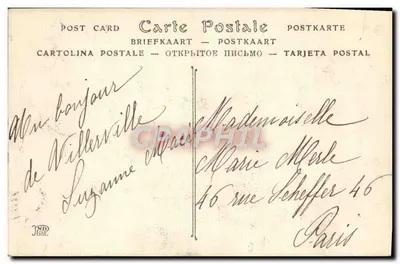 POST CARD Carte Postale POSTKARTE
BRIEFKAART — POSTKAART
CARTOLINA POSTALE — ОТКРЫТОЕ ПИСЬМО — TARJETA POSTAL
Un bonjour
de Villerville
Suzanne Macé
Mademoiselle
Marie Merle
46 rue Scheffer 46
Paris
ND
Phot.
DELCAMPE